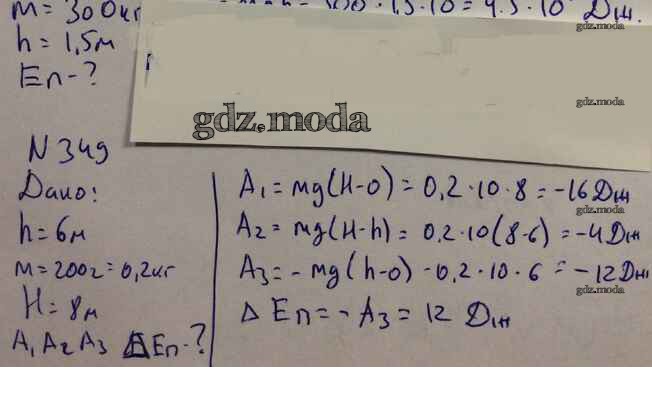 m = 300кг = mgh = 300 · 1,5 · 10 = 4.5 · 10 Дж.
gdz.moda
h = 1,5м
Еп - ?
gdz.moda
gdz.moda
N 349
Дано:
h = 6м
m = 200г = 0,2кг
H = 8м
A₁ A₂ A₃ ΔEп - ?
A₁ = mg(H-0) = 0,2 · 10 · 8 = -16 Дж
gdz.moda
A₂ = mg(H-h) = 0,2 · 10(8-6) = -4 Дж
gdz.moda
A₃ = - mg(h-0) - 0,2 · 10 · 6 = - 12 Дж
gdz.moda
Δ Еп = - A₃ = 12 Дж